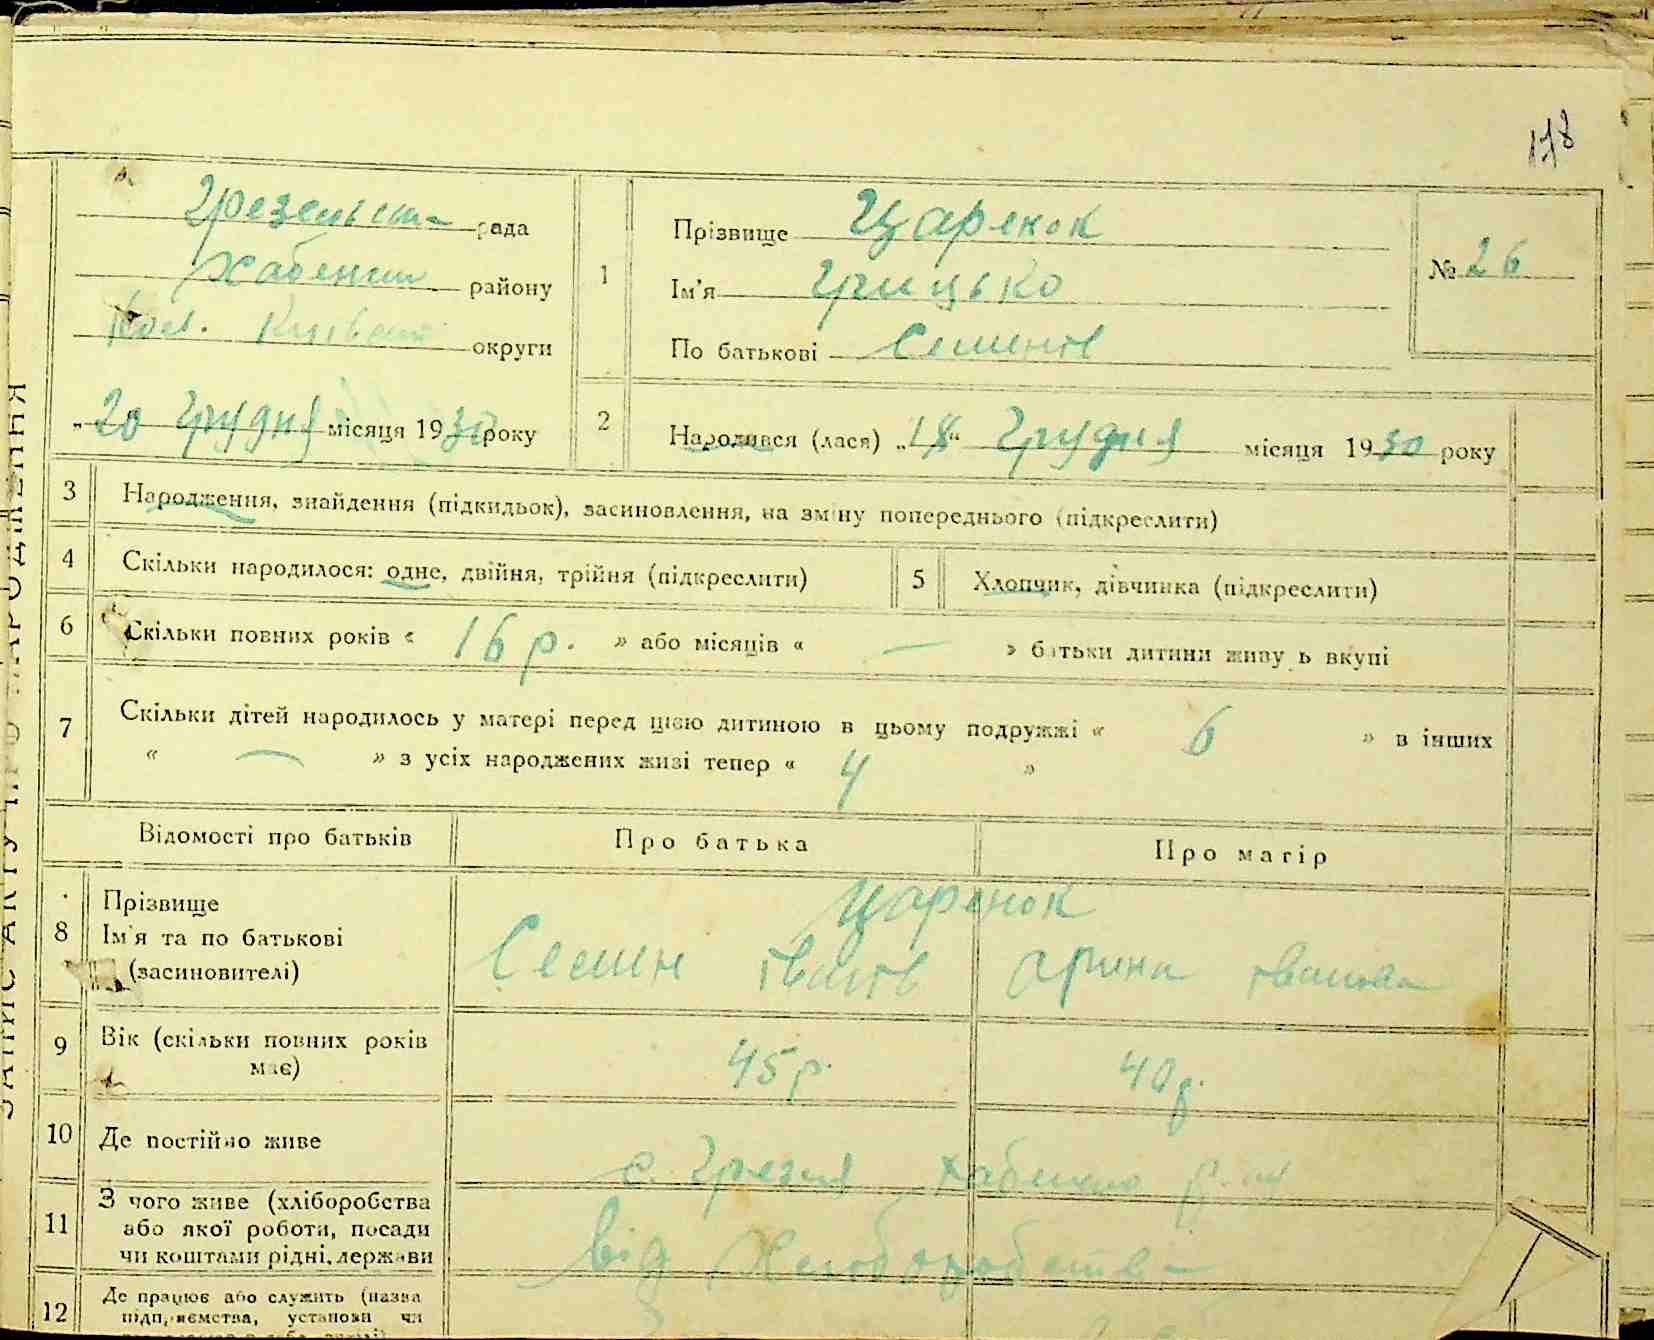 178
Грезельська рада
Хабенськ району
Кол. Київськ округи
„20 Грудня місяця 1930 року
1
Прізвище Царенок
Ім'я Грицько
По батькові Семенів
№ 26
2
Народився (лася) „18“ Грудня місяця 1930 року
3 Народження, знайдення (підкидьок), засиновлення, на зміну попереднього (підкреслити)
4 Скільки народилося: одне, двійня, трійня (підкреслити)
5 Хлопчик, дівчинка (підкреслити)
6 Скільки повних років « 16 р. » або місяців « — » батьки дитини живуть вкупі
7 Скільки дітей народилось у матері перед цією дитиною в цьому подружжі « 6 » в інших
« — » з усіх народжених живі тепер « 4 »
Відомості про батьків Про батька Про матір
8 Прізвище
Ім'я та по батькові
(засиновителі)
Царенок
Семен Іванів Арина Іванова
9 Вік (скільки повних років
має)
45 р. 40 р.
10 Де постійно живе
с. Грезля Хабенсько р-ну
11 З чого живе (хліборобства
або якої роботи, посади
чи коштами рідні, держави
від Хліборобства
12 Де працює або служить (назва
підприємства, установи чи
ЗАПИС АКТУ ПРО НАРОДЖЕННЯ